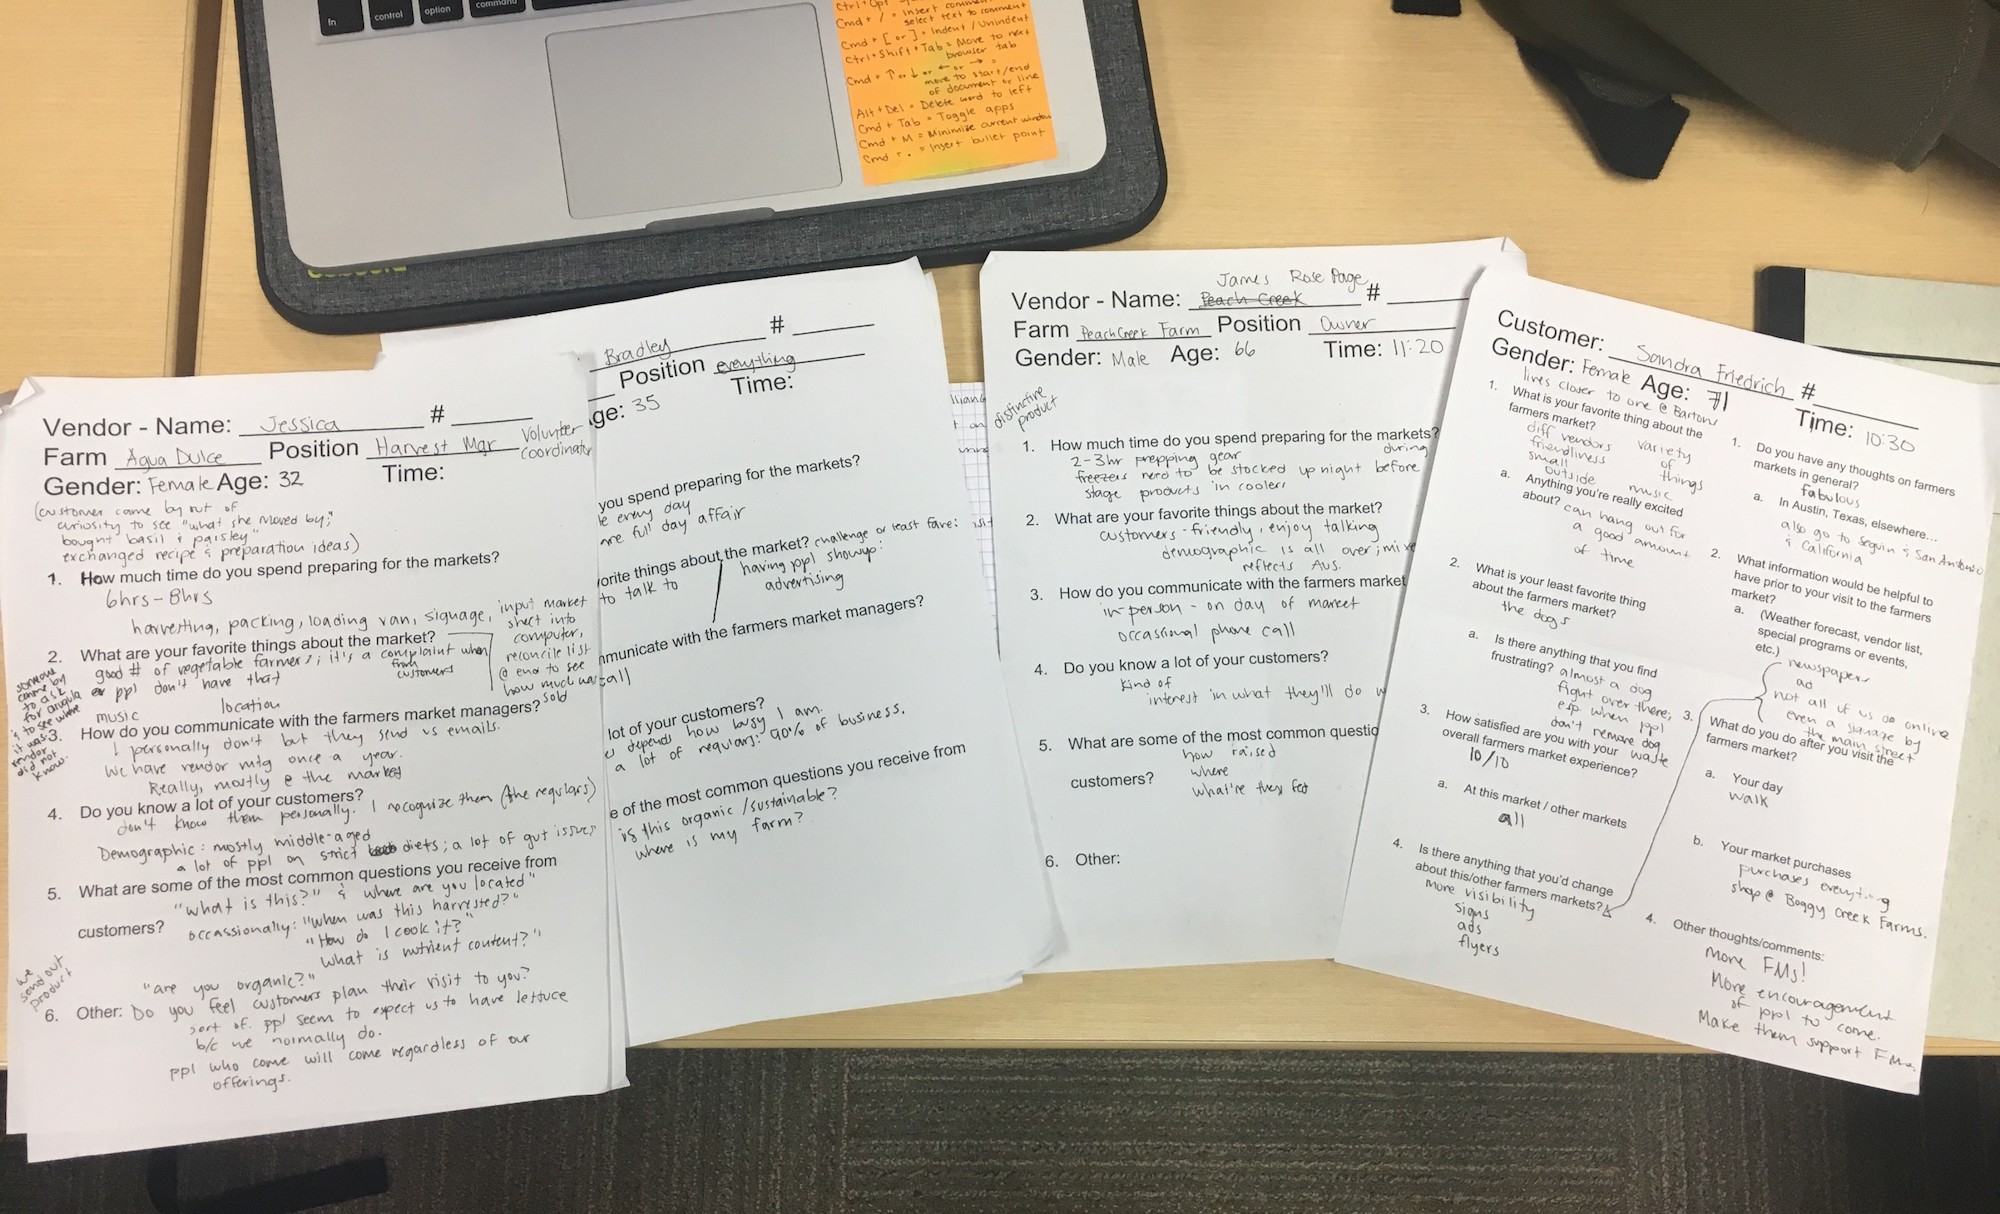 fn
control
option
command
Cmd + / = Insert comment
select text to comment
Cmd + [ or ] = Indent / Unindent
Ctrl + Shift + Tab = Move to next
browser tab
Cmd + ↑ or ↓ or ← or → =
move to start/end
of document or line
Alt + Del = Delete word to left
Cmd + Tab = Toggle apps
Cmd + M = Minimize current window
Cmd + . = Insert bullet point
Vendor - Name: Jessica #
Farm Agua Dulce Position Harvest Mgr Volunteer
coordinator
Gender: Female Age: 32 Time:
(customer came by out of
curiosity to see "what she moved by;"
bought basil & parsley
exchanged recipe & preparation ideas)
1. How much time do you spend preparing for the markets?
6hrs - 8hrs
harvesting, packing, loading van, signage, input market
sheet into
computer,
reconcile list
@ end to see
how much was
sold
2. What are your favorite things about the market?
good # of vegetable farmers; it's a complaint when
from
customers
ppl don't have that
location
music
someone
came by
to ask
for arugula
& to see where
it was.
vendor
did not
know.
3. How do you communicate with the farmers market managers?
I personally don't but they send us emails.
We have vendor mtg once a year.
Really, mostly @ the market
4. Do you know a lot of your customers?
don't know them personally. I recognize them (the regulars)
Demographic: mostly middle-aged
a lot of ppl on strict diets; a lot of gut issues
5. What are some of the most common questions you receive from
customers?
"what is this?" & where are you located"
occassionally: "When was this harvested?"
"How do I cook it?"
"What is nutrient content?"
"are you organic?"
we
send out
product
6. Other: Do you feel customers plan their visit to you?
sort of. ppl seem to expect us to have lettuce
b/c we normally do.
ppl who come will come regardless of our
offerings.
Bradley #
Position everything
ge: 35 Time:
you spend preparing for the markets?
every day
are full day affair
orite things about the market? challenge or least fave:
to talk to
having ppl showup:
advertising
mmunicate with the farmers market managers?
call
lot of your customers?
depends how busy I am.
a lot of regulars: 90% of business.
e of the most common questions you receive from
is this organic/sustainable?
where is my farm?
James Rose Page
Vendor - Name: Peach Creek #
Farm PeachCreek Farm Position Owner
Gender: Male Age: 66 Time: 11:20
distinctive
product
1. How much time do you spend preparing for the markets?
during
2-3hr prepping gear
freezers need to be stocked up night before
stage products in coolers
2. What are your favorite things about the market?
customers - friendly, enjoy talking
demographic is all over; mixe
reflects Aus.
3. How do you communicate with the farmers market
in-person - on day of market
occassional phone call
4. Do you know a lot of your customers?
kind of
interest in what they'll do w
5. What are some of the most common questio
customers?
how raised
where
what're they fed
6. Other:
Customer: Sandra Friedrich #
Gender: Female Age: 71 Time: 10:30
lives closer to one @ Barton
1. What is your favorite thing about the
farmers market?
diff vendors
friendliness
small
outside
variety
of
things
music
a. Anything you're really excited
about? can hang out for
a good amount
of time
2. What is your least favorite thing
about the farmers market?
the dogs
a. Is there anything that you find
frustrating? almost a dog
fight over there;
esp when ppl
don't remove dog
waste
3. How satisfied are you with your
overall farmers market experience?
10/10
a. At this market / other markets
all
4. Is there anything that you'd change
about this/other farmers markets?
more visibility
signs
ads
flyers
1. Do you have any thoughts on farmers
markets in general?
fabulous
a. In Austin, Texas, elsewhere...
also go to Seguin & San Antonio
& California
2. What information would be helpful to
have prior to your visit to the farmers
market?
a. (Weather forecast, vendor list,
special programs or events,
etc.)
newspaper
ad
not all of us do online
even a signage by
the main street
3. What do you do after you visit the
farmers market?
a. Your day
walk
b. Your market purchases
purchases everything
shop @ Boggy Creek Farms.
4. Other thoughts/comments:
More FMs!
More encouragement
of ppl to come.
Make them support FMs.